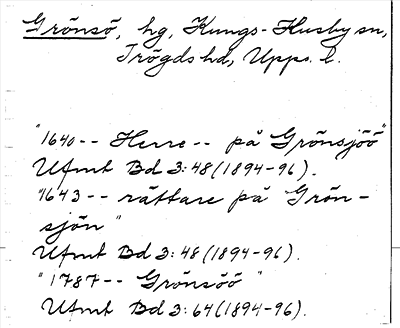 Grönsö, hg, Kungs-Husby sn,
Trögds hd, Upps. l.
"1640-- Herre -- på Grönsjöö"
Ufmt Bd 3:48 (1894-96).
"1643-- rättare på Grön-
sjön"
Ufmt Bd 3:48 (1894-96).
"1787-- Grönsöö"
Ufmt Bd 3:64 (1894-96).